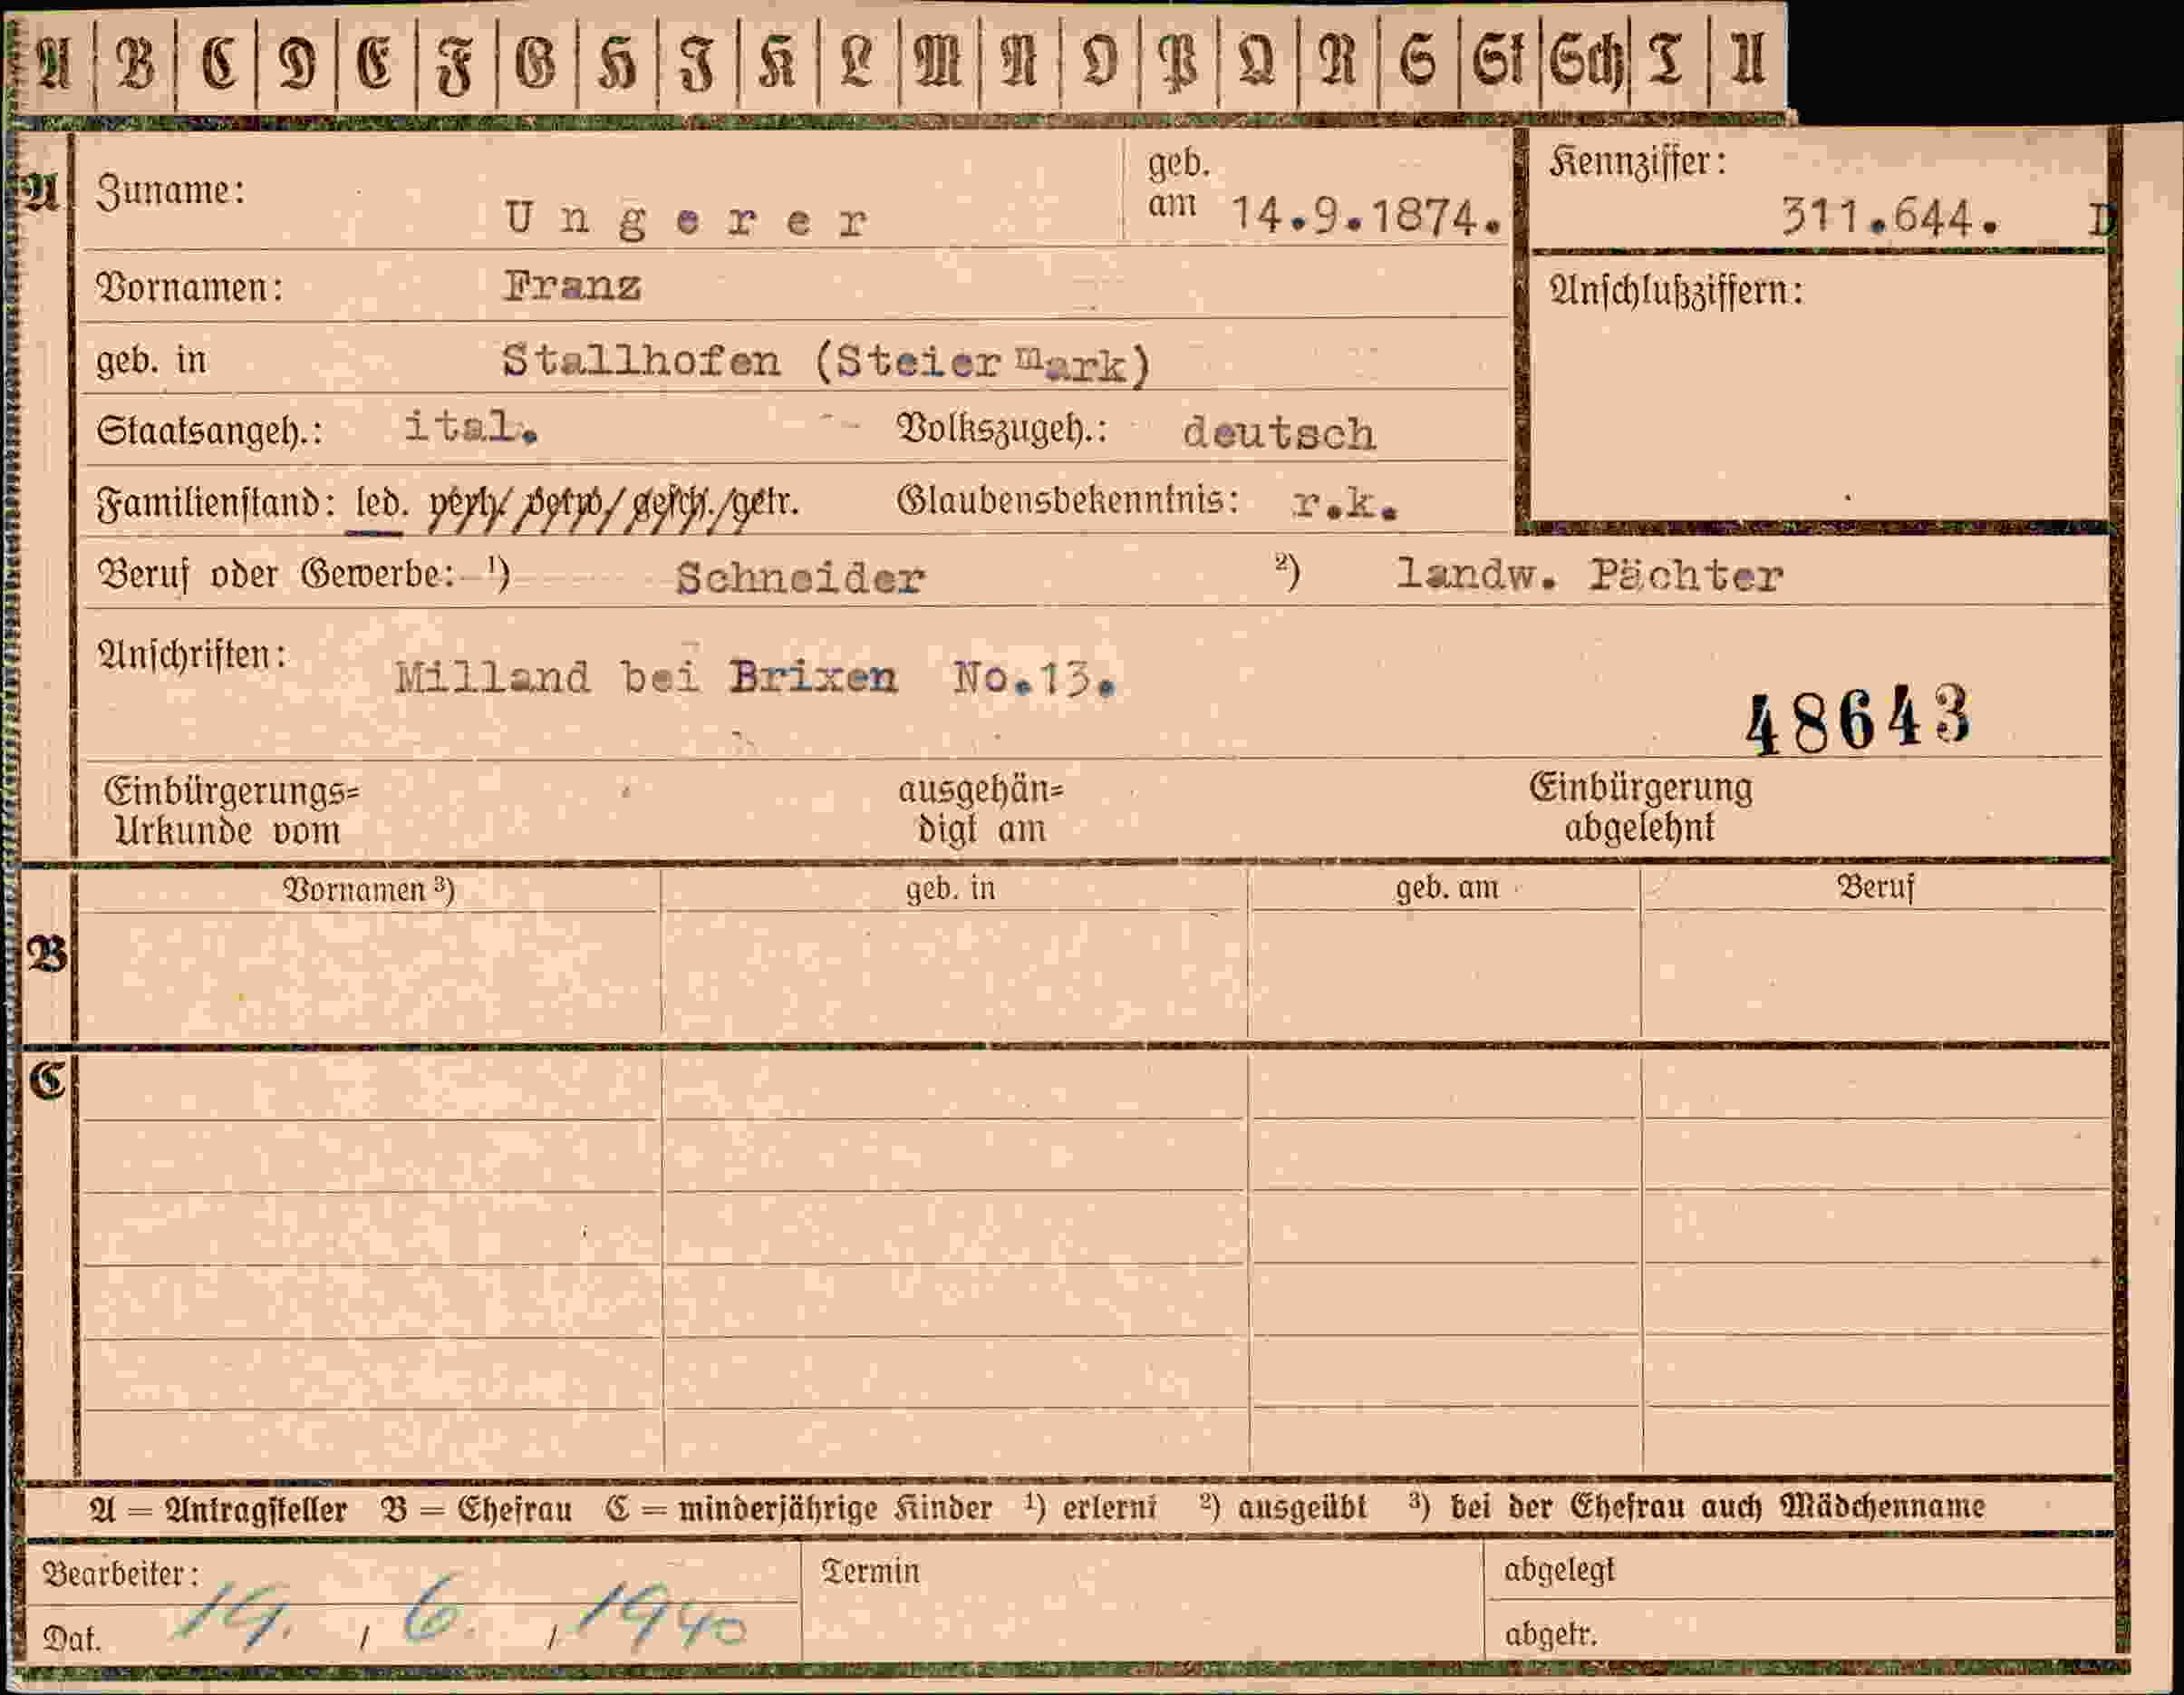 A B C D E F G H I K L M N O P Q R S St Sch T U
A Zuname: Ungerer geb. am 14.9.1874. Kennziffer: 311.644. D
Vornamen: Franz Anschlußziffern:
geb. in Stallhofen (Steiermark)
Staatsangeh.: ital. Volkszugeh.: deutsch
Familienstand: led. verh./verw./gesch./getr. Glaubensbekenntnis: r.k.
Beruf oder Gewerbe: ¹) Schneider ²) landw. Pächter
Anschriften: Milland bei Brixen No.13.
48643
Einbürgerungs= ausgehän= Einbürgerung
Urkunde vom digt am abgelehnt
Vornamen ³) geb. in geb. am Beruf
B
C
A = Antragsteller B = Ehefrau C = minderjährige Kinder ¹) erlernt ²) ausgeübt ³) bei der Ehefrau auch Mädchenname
Bearbeiter: Termin abgelegt
Dat. 19. / 6. / 1940 abgetr.